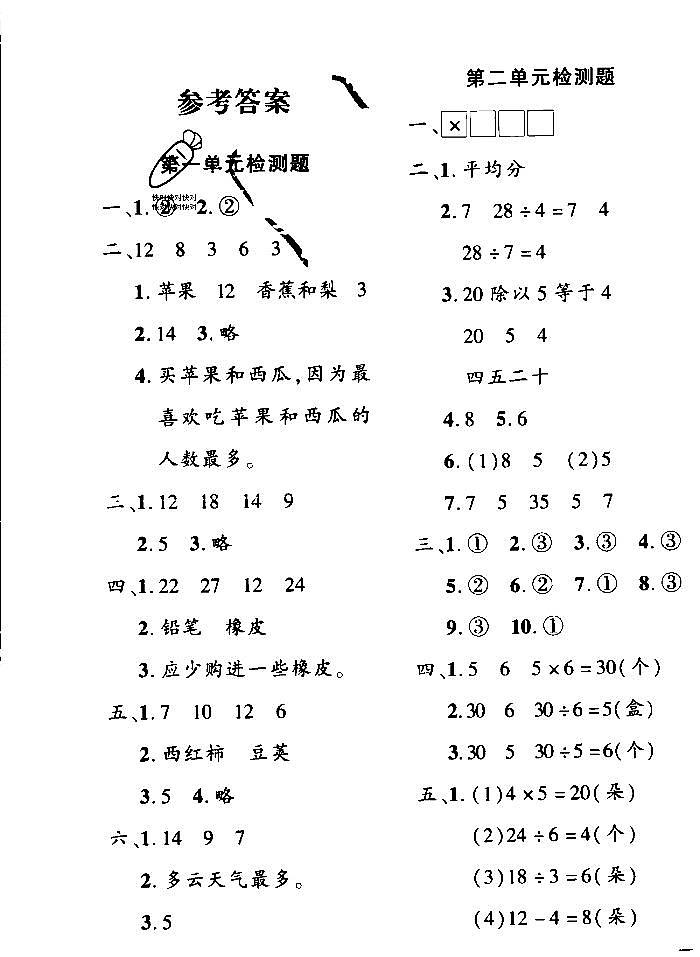 参考答案
第一单元检测题
快对快对快对
快对快对快对
一、1.② 2.②
二、12 8 3 6 3
1.苹果 12 香蕉和梨 3
2.14 3.略
4.买苹果和西瓜,因为最
喜欢吃苹果和西瓜的
人数最多。
三、1.12 18 14 9
2.5 3.略
四、1.22 27 12 24
2.铅笔 橡皮
3.应少购进一些橡皮。
五、1.7 10 12 6
2.西红柿 豆荚
3.5 4.略
六、1.14 9 7
2.多云天气最多。
3.5
第二单元检测题
一、×
二、1.平均分
2.7 28÷4=7 4
28÷7=4
3.20除以5等于4
20 5 4
四五二十
4.8 5.6
6.(1)8 5 (2)5
7.7 5 35 5 7
三、1.① 2.③ 3.③ 4.③
5.② 6.② 7.① 8.③
9.③ 10.①
四、1.5 6 5×6=30(个)
2.30 6 30÷6=5(盒)
3.30 5 30÷5=6(个)
五、1.(1)4×5=20(朵)
(2)24÷6=4(个)
(3)18÷3=6(朵)
(4)12-4=8(朵)